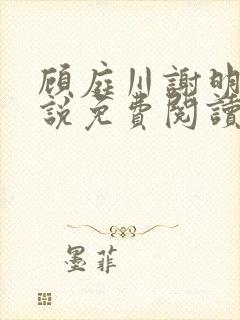 顾庭川謝明
說免費閱讀
墨菲